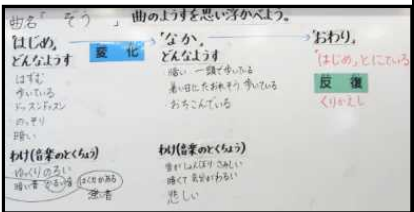 曲名「ぞう」 曲のようすを思い浮かべよう。
はじめ 変化 なか おわり
どんなようす
はずむ
歩いている
ドッスンドッスン
のっそり
暗い
わけ(音楽のとくちょう)
ゆっくりのろい
暗い音 はくりょくがある
強い音
どんなようす
暗い 一頭で歩いている
暑い日にたおれそう 歩いている
おちこんでいる
わけ(音楽のとくちょう)
音がしょんぼり さみしい
暗くて 気分がわるい
悲しい
「はじめ」とにている
反復
くりかえし